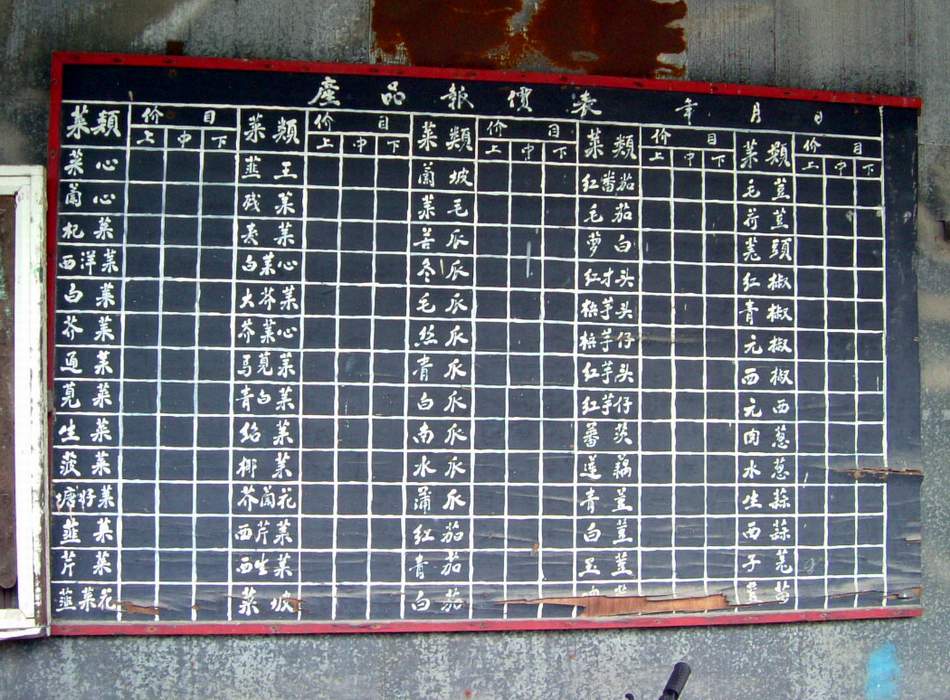 產品報價表 年 月 日
菜類 价目 菜類 价目 菜類 价目 菜類 价目 菜類 价目
上 中 下 上 中 下 上 中 下 上 中 下 上 中 下
菜心 韮王 蘭坡 红蕃茄 毛荳
蘭心 残菜 菜毛 毛茄 荷荳
杞菜 麦菜 苦瓜 萝白 羌頭
西洋菜 白菜心 冬瓜 红才头 红椒
白菜 大芥菜 毛瓜 梹芋头 青椒
芥菜 芥菜心 丝瓜 梹芋仔 元椒
通菜 馬莧菜 青瓜 红芋头 西椒
莧菜 青白菜 白瓜 红芋仔 元西
生菜 绍菜 南瓜 蕃茨 肉葱
菠菜 椰菜 水瓜 莲藕 水葱
塘好菜 芥蘭花 蒲瓜 青荳 生蒜
韮菜 西芹菜 红茄 白荳 西蒜
芹菜 西生菜 青茄 玉荳 子羌
韮菜花 菜坡 白茄